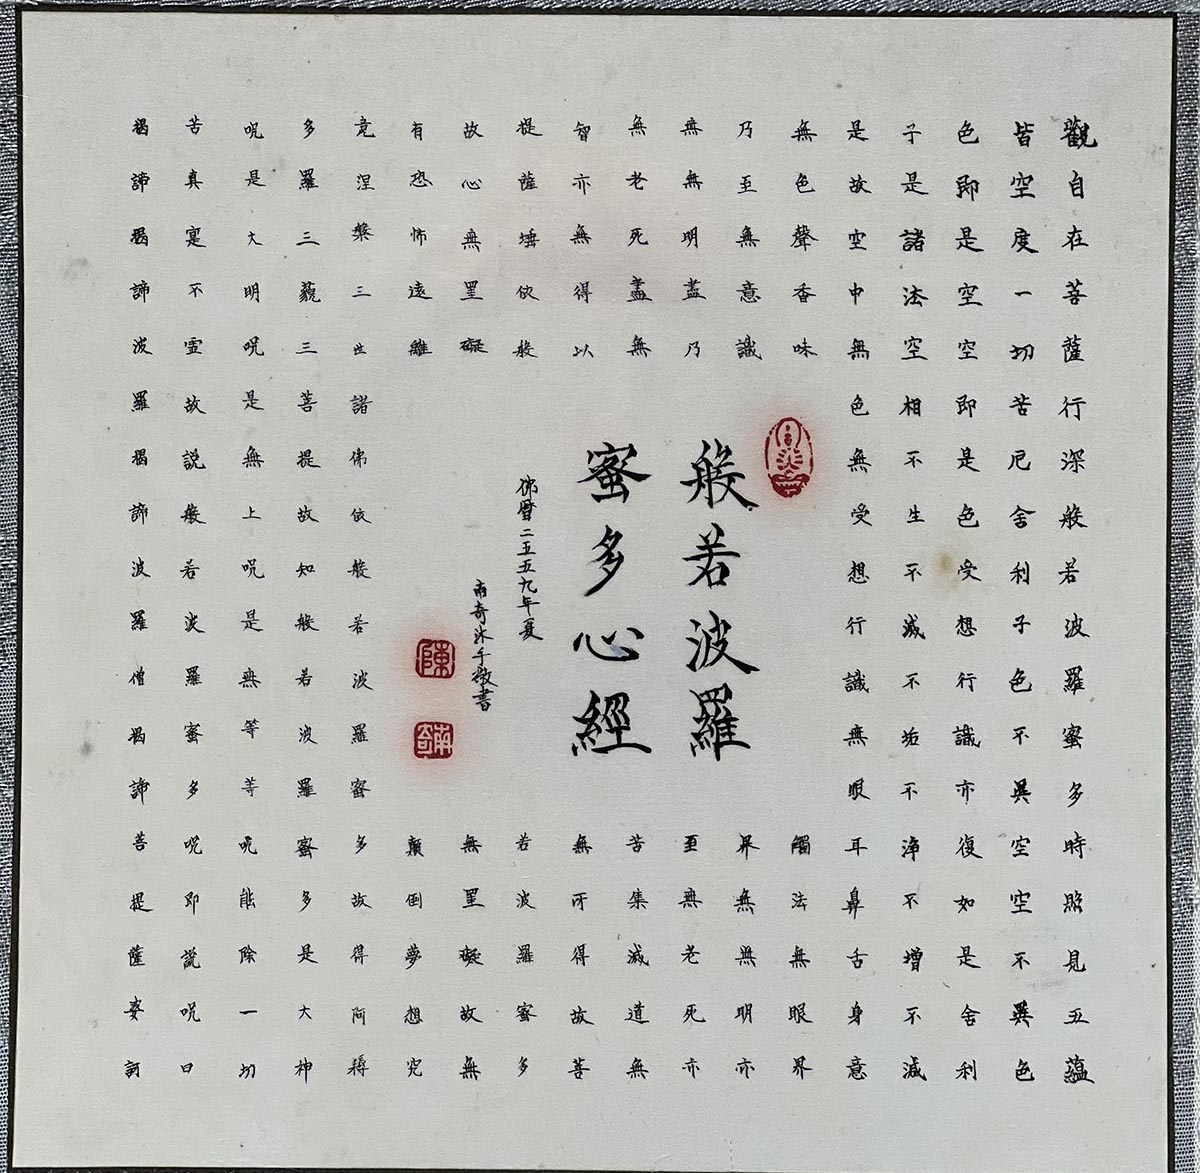 觀自在菩薩行深般若波羅蜜多時照見五蘊
皆空度一切苦厄舍利子色不異空空不異色
色即是空空即是色受想行識亦復如是舍利
子是諸法空相不生不滅不垢不淨不增不減
是故空中無色無受想行識無眼耳鼻舌身意
無色聲香味觸法無眼界
乃至無意識界無無明亦
無無明盡乃至無老死亦
無老死盡無苦集滅道無
智亦無得以無所得故菩
提薩埵依般若波羅蜜多
故心無罣礙無罣礙故無
有恐怖遠離顛倒夢想究
竟涅槃三世諸佛依般若波羅蜜多故得阿耨
多羅三藐三菩提故知般若波羅蜜多是大神
呪是大明呪是無上呪是無等等呪能除一切
苦真實不虛故說般若波羅蜜多呪即說呪曰
揭諦揭諦波羅揭諦波羅僧揭諦菩提薩婆訶
般若波羅
蜜多心經
佛曆二五五九年夏
南奇沐手敬書
陳
南奇